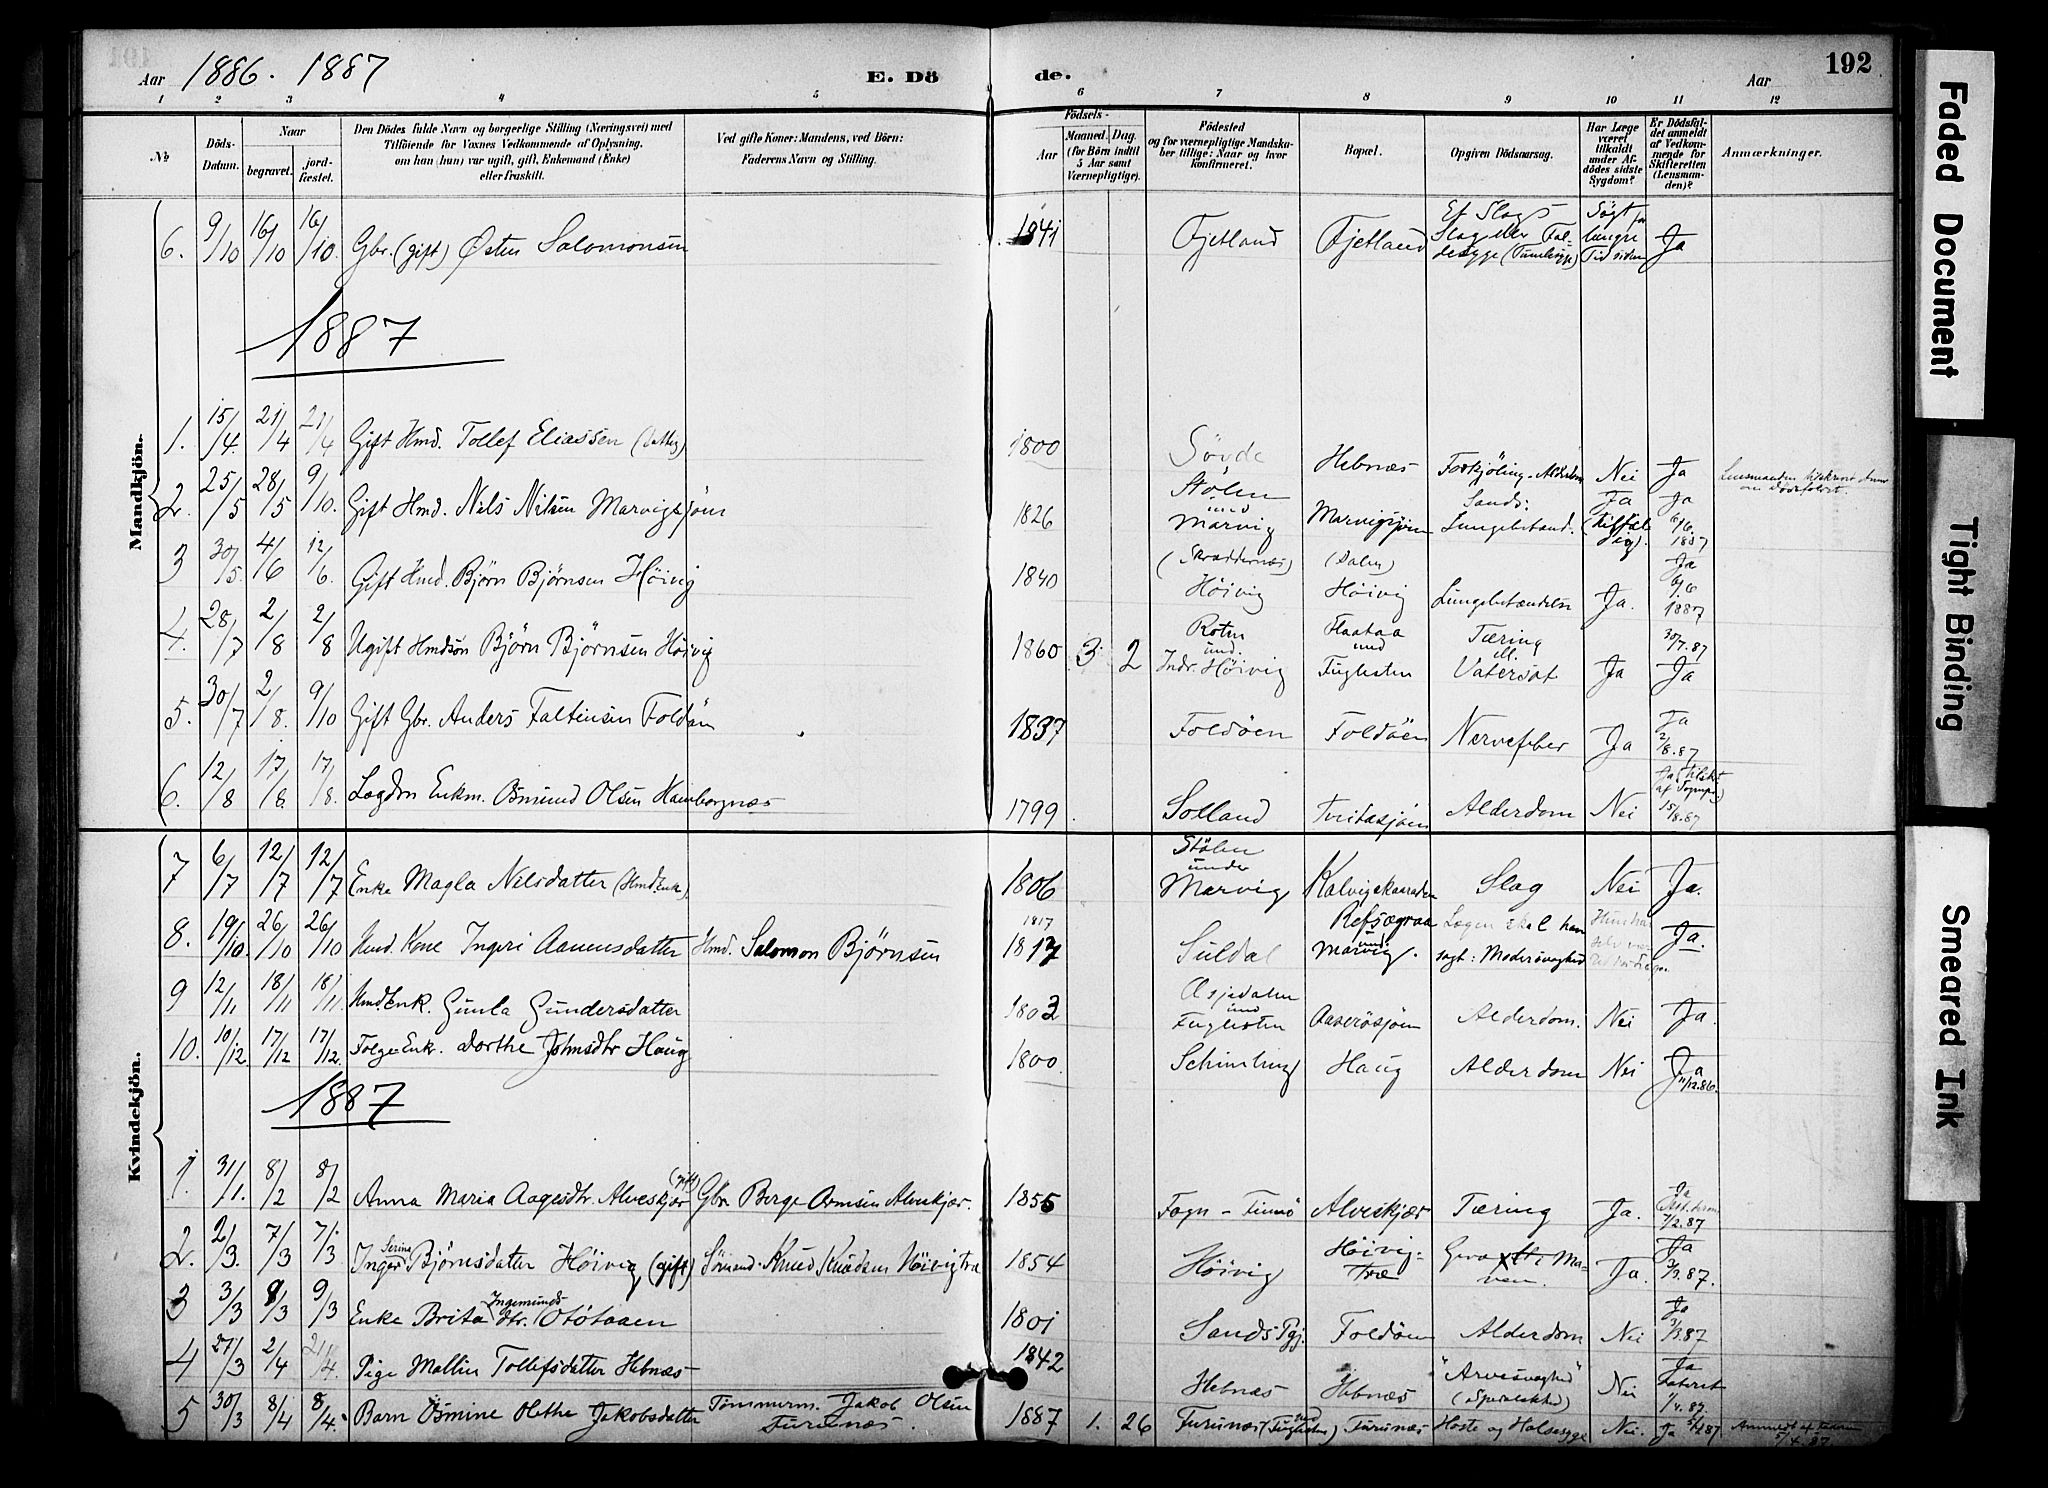 Aar 1886. 1887 E. Dö de. Aar 192
1 2 3 4 5 6 7 8 9 10 11 12
No
Döds-Datum.
Naar
begravet.
jord-fæstet.
Den Dödes fulde Navn og borgerlige Stilling (Næringsvei) med
Tilföiende for Voxnes Vedkommende af Oplysning,
om han (hun) var ugift, gift, Enkemand (Enke)
eller fraskilt.
Ved gifte Koner: Mandens, ved Börn:
Faderens Navn og Stilling.
Födsels-
Aar
Maaned. Dag.
(for Börn indtil
5 Aar samt
Værnepligtige).
Födested
og for værnepligtige Mandska-
ber tillige: Naar og hvor
konfirmeret.
Bopæl.
Opgiven Dödsaarsag.
Har Læge
været
tilkaldt
under Af-
dödes sidste
Sygdom?
Er Dödsfal-
det anmeldt
af Vedkom-
mende for
Skifteretten
(Lensman-
den)?
Anmærkninger.
Mandkjön.
6. 9/10 16/10 16/10 Gbr. (gift) Østen Salomonsen 1841 Fjetland Fjetland Slag eller Fal- Ja
1887
1. 15/4. 21/4 21/4 Gift Hmd. Tollef Eliassen 1800 Søvde Hebnæs Forkjöling. Nei Ja
2. 25/5 28/5 9/10. Gift Hmd. Nels Nilsen Marvigsjöen 1826 Stölen und Marvig Marvigsjöen Lungebetænd. Ja Ja 6/6 1887
3 30/5. 4/6 12/6. Gift Hmd. Björn Björnsen Höivig 1840 (Skraddernæs) Höivig (Dalen) Höivig Lungebetændelse Ja. Ja 6/6 1887
4. 28/7 2/8 2/8 Ugift Hmdsön Björn Björnsen Höivig 1860 3 2 und. Indr. Höivig Flaataa und Fuglesten Tæring ell. Vatersot Ja 30/7.87 Ja
5. 30/7 2/8. 9/10 Gift Gbr. Anders Faltinsen Foldöen 1837 Foldöen Foldöen Nervefeber Ja Ja 2/8.87
6. 12/8 17/8. 17/8. Lægdm Enkm. Osmund Olsen Hamborgnæs 1799 Solland Tveitasjöen Alderdom Nei 15/8.87
Kvindekjön.
7 6/7 12/7 12/7 Enke Magla Nelsdatter (Hmd Enk). 1806 Stölen under Marvig Kalvigskaaraden Slag Nei Ja.
8. 19/10. 26/10 26/10 Hmd. Kone Ingeri Aamundsdatter Hmd. Salomon Björnsen 1817 1817 Suldal Refsegraa und Marvig. Lægen skal have sagt: Modersvaghed Ja.
9 12/11 18/11 18/11. Hmd Enk. Gunla Gundersdatter 1803 und Fuglesten Aaserösjöen Alderdom. Nei Ja.
10. 10/12 17/12 17/12. Folge Enk. Dorthe Johnsdtr Haug 1800 Haug Alderdom Nei Ja 11/12.86.
1887
1. 31/1. 8/2 8/2 Anna Maria Aagesdtr. Alveskjær (gift) Gbr. Berge Ormsen Alveskjær. 1855 Fogn - Finnö Alveskjær Tæring Ja. Ja 7/2.87
2. 2/3. 7/3 7/3 Inger Serine Björnsdatter Höivig (gift) Sömand. Knud Knudsen Höivigtræ 1854 Höivig Höivig-træ Ma-ven. Ja. Ja 3/3.87.
3 3/3 8/3 9/3 Enke Brita Ingemunds- dtr. Otötaaen 1801 Sands Pgj. Foldöen Alderdom Nei Ja 3/3.87
4 27/3 2/4 2/4. Pige Mallin Tollefsdatter Hebnæs 1842 Hebnæs Hebnæs "Arvesvaghed" (Spedalskhed) Nei Ja 1/4.87.
5 30/3 8/4 8/4. Barn Osmine Olethe Jakobsdatter Tömmerm. Jakob Olsen Furunæs. 1887 1. 26 Furunæs (und Fuglesten) Furunæs Hoste og Halssyge Nei. Ja 5/4.87
Faded Document
Tight Binding
Smeared Ink